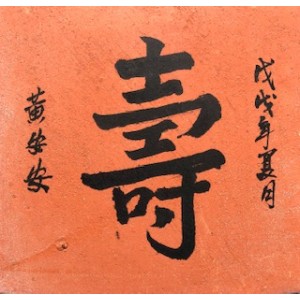 戊戌年夏月
壽
黃安安